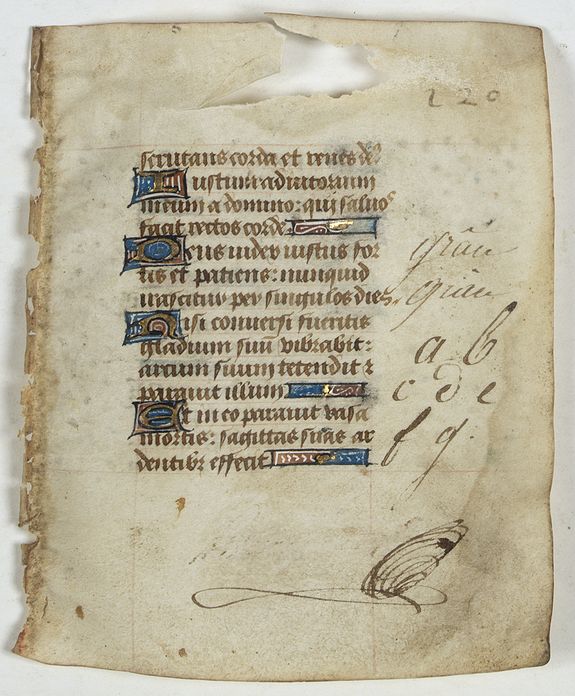 220
scrutans corda et renes deꝰ
Iustum adiutorium
meum a domino: qui saluoˢ
facit rectos corde
Deus iudex iustus for
tis et patiens: nunquid
irascitur per singulos dies.
Nisi conuersi fueritis
gladium suū vibrabit:
arcum suum tetendit ⁊
parauit illum
Et in eo parauit vasa
mortis: sagittas suas ar
dentibꝫ effecit
a b
c d e
f g.